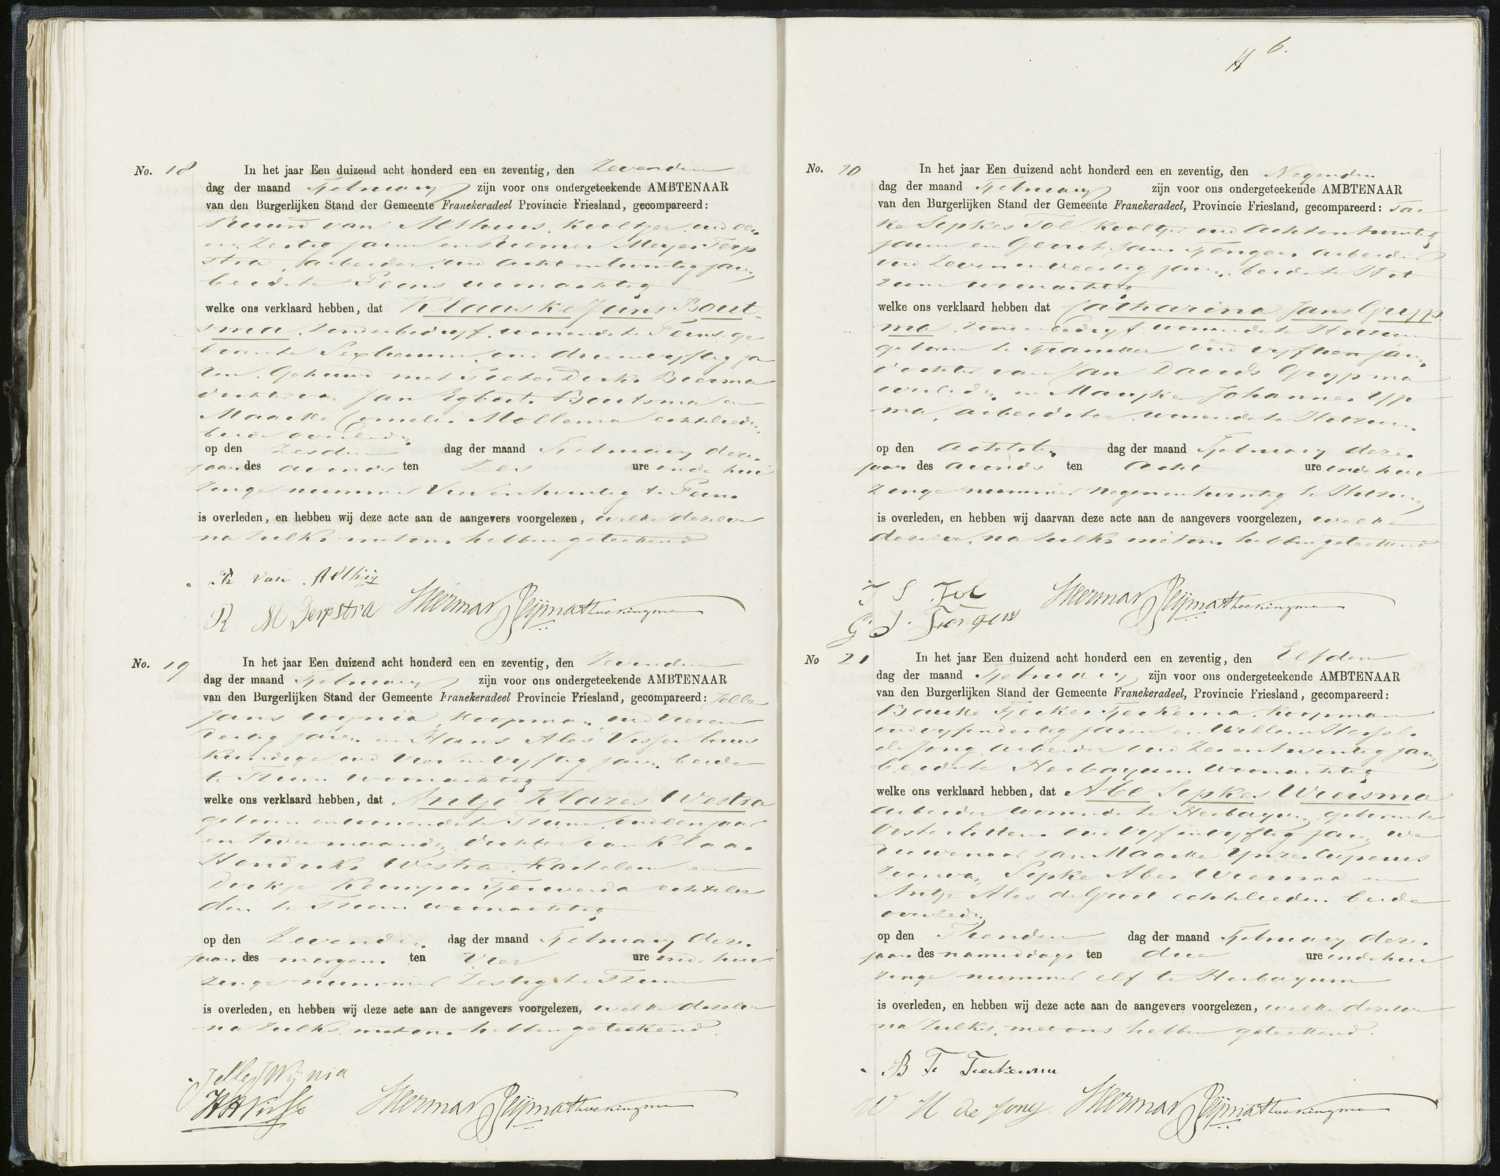 No. 18 In het jaar Een duizend acht honderd een en zeventig, den Zevenden
dag der maand February zijn voor ons ondergeteekende AMBTENAAR
van den Burgerlijken Stand der Gemeente Franekeradeel Provincie Friesland, gecompareerd:
Ruurd van Althuis, Kooltjer, oud een
en Zestig jaren en Riemer Meyer Terp
stra, arbeider, oud acht en twintig jaren,
beide te Peins woonachtig
welke ons verklaard hebben, dat Klaaske Jans Bout-
sma, zonder bedryf, woonende te Peins, ge
boren te Sexbierum, oud drie en vyftig ja
ren, Gehuwd met Pieter Dirks Bierma
dochter van Jan Egberts Boutsma en
Maaike Cornelis Mollema echtelieden
beide overleden
op den Zesden dag der maand February dezes
jaars des avonds ten Zes ure in de hui
zinge nummer Vier en twintig te Peins
is overleden, en hebben wij deze acte aan de aangevers voorgelezen, welke dezelve
na zulks met ons hebben geteekend
R van Althuis
R M Terpstra Herman Reijma Hoekingma
No. 19 In het jaar Een duizend acht honderd een en zeventig, den Zevenden
dag der maand February zijn voor ons ondergeteekende AMBTENAAR
van den Burgerlijken Stand der Gemeente Franekeradeel Provincie Friesland, gecompareerd: Jelle
Jans Wynia, Koopman, oud
dertig jaren en Hans Ales Visser
kundige oud Vier en vyftig jaren, beide
te Tzum woonachtig
welke ons verklaard hebben, dat Antje Klazes Westra
geboren en woonende te Tzum, oud een jaar
en twee maanden, dochter van Klaas
Hendriks Westra, Kastelein en
Dirkje Kempes Ferwerda echtelie
den te Tzum woonachtig
op den Zevenden dag der maand February dezes
jaars des morgens ten Vier ure in de hui
zinge nummer Zestig te Tzum
is overleden, en hebben wij deze acte aan de aangevers voorgelezen, welke dezelve
na zulks met ons hebben geteekend.
Jelle J Wijnia
H A Visser Herman Reijma Hoekingma
6.
No. 20 In het jaar Een duizend acht honderd een en zeventig, den Negenden
dag der maand February zijn voor ons ondergeteekende AMBTENAAR
van den Burgerlijken Stand der Gemeente Franekeradeel, Provincie Friesland, gecompareerd:
ke Sepkes Tol, Kooltjer oud acht en twintig
jaren en Gerrit Jans Tjenger arbeider
oud Zeven en veertig jaren, beide te Hit
zum woonachtig
welke ons verklaard hebben dat Catharina Jans Gryp
ma, zonder bedryf woonende te Hitzum
geboren te Franeker oud vyftien jaren
dochter van Jan Davids Grypma
overleden en Maayke Johannes Yp
ma, arbeidster, woonende te Hitzum.
op den achtsten dag der maand February dezes
jaars des avonds ten acht ure in de hui
zinge nummer negen en twintig te Hitzum
is overleden, en hebben wij daarvan deze acte aan de aangevers voorgelezen, welke
dezelve, na zulks met ons hebben geteekend
S Tol
G. J. Herman Reijma Hoekingma
No 21 In het jaar Een duizend acht honderd een en zeventig, den Elfden
dag der maand February zijn voor ons ondergeteekende AMBTENAAR
van den Burgerlijken Stand der Gemeente Franekeradeel, Provincie Friesland, gecompareerd:
Bauke Fjeekes Fjeekema, Koopman
oud jaren en Willem
de Jong, arbeider oud Zeven en twintig jaren,
beide te Herbayum woonachtig
welke ons verklaard hebben, dat Abe Sepkes Wiersma
arbeider woonende te Herbayum, geboren te
Oosterlittens oud Vyf en vyftig jaren, we
duwenaar van Maaike Ypeus
zoon van Sepke Abes Wiersma en
Antje Ales de Groot echtelieden beide
overleden
op den Tienden dag der maand February dezes
jaars des namiddags ten drie ure in de hui
zinge nummer elf te Herbayum
is overleden, en hebben wij deze acte aan de aangevers voorgelezen, welke dezelve
na zulks, met ons hebben geteekend
B F Fjeekema
W H de Jong Herman Reijma Hoekingma